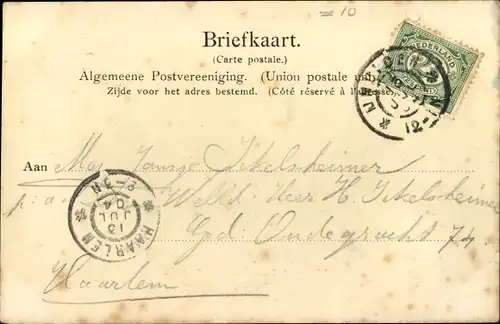 = 10
Briefkaart.
(Carte postale.)
Algemeene Postvereeniging. (Union postale
Zijde voor het adres bestemd. (Côté réservé à
NEDERLAND
Aan Mej. Ikelsheimer
p/a Weled. Heer H. Ikelsheimer
Ged. Oudegracht 74
Haarlem
HAARLEM
13
JUL
04
12